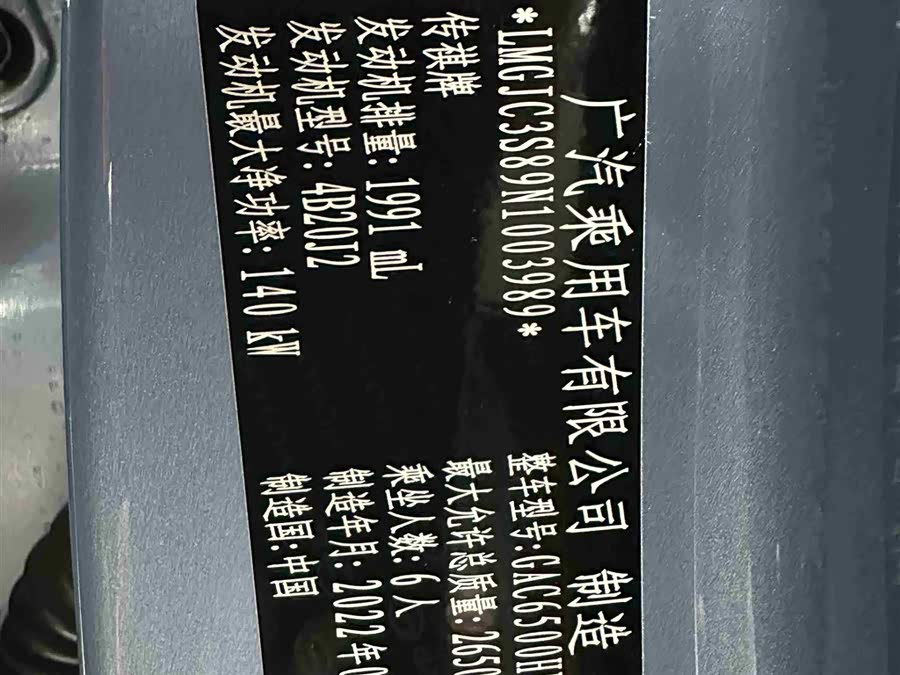 广汽乘用车有限公司 制造
*LMGJC3S89N1003989* 整车型号:GAC6500H
传祺牌 最大允许总质量:2650
发动机排量:1991 mL 乘坐人数:6人
发动机型号:4B20J2 制造年月:2022年0
发动机最大净功率:140 kW 制造国:中国